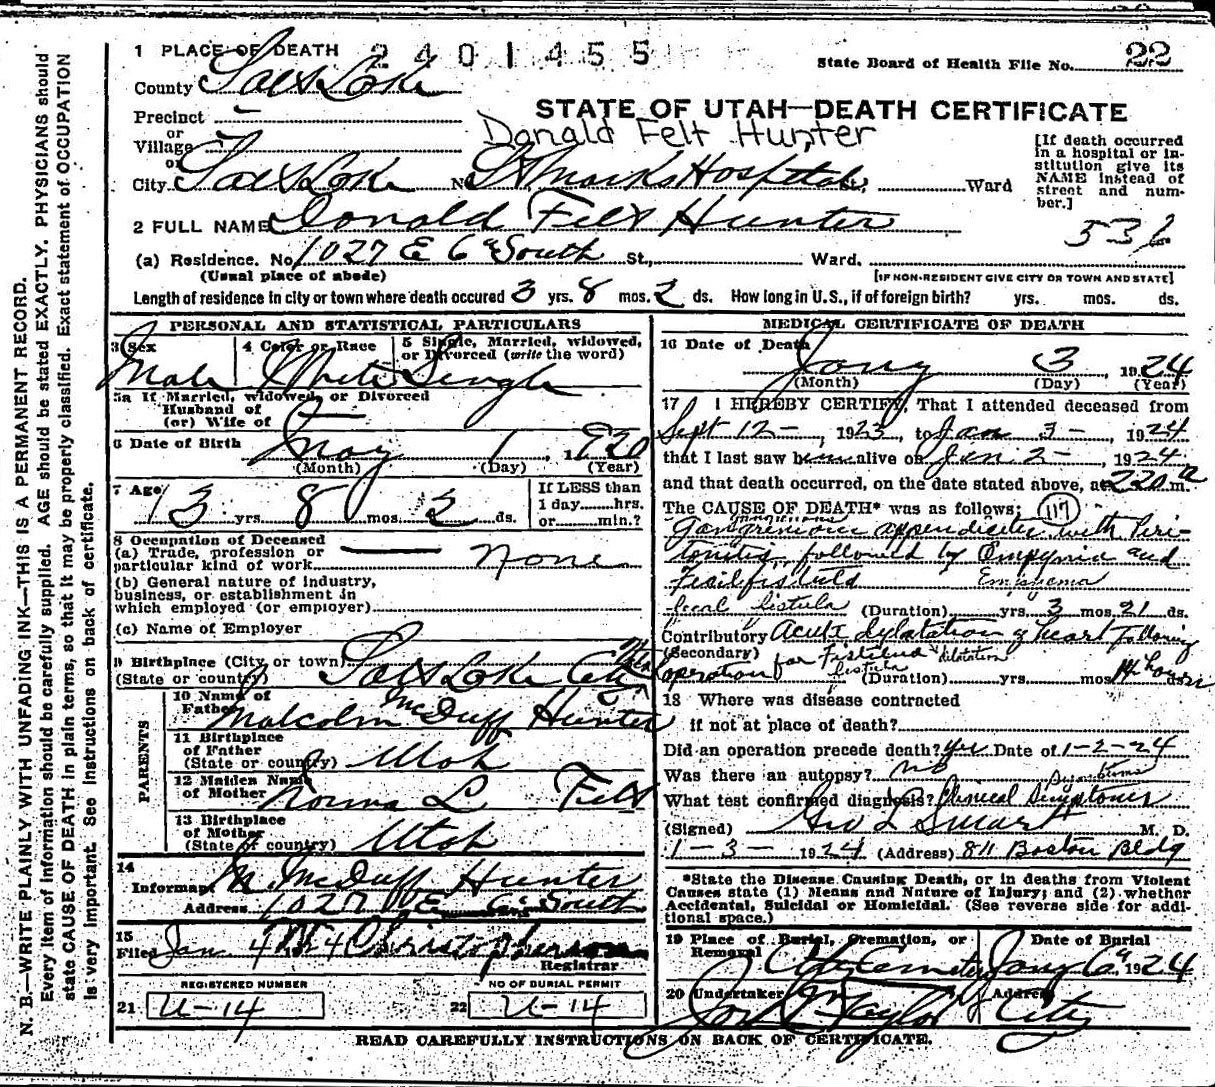 1 PLACE OF DEATH 2401455
State Board of Health File No. 22
County Salt Lake
STATE OF UTAH—DEATH CERTIFICATE
Precinct —
or
Donald Felt Hunter
Village
or
City Salt Lake No. St Marks Hospital St., Ward
[If death occurred
in a hospital or in-
stitution give its
NAME instead of
street and num-
ber.]
2 FULL NAME Donald Felt Hunter
(a) Residence. No. 1027 E 6th South St., Ward.
(Usual place of abode) [IF NON-RESIDENT GIVE CITY OR TOWN AND STATE]
Length of residence in city or town where death occured 3 yrs. 8 mos. 2 ds. How long in U.S., if of foreign birth? yrs. mos. ds.
PERSONAL AND STATISTICAL PARTICULARS
3 Sex 4 Color or Race 5 Single, Married, widowed,
or Divorced (write the word)
Male White Single
5a If Married, widowed, or Divorced
Husband of
(or) Wife of —
6 Date of Birth May 1, 1920
(Month) (Day) (Year)
7 Age 3 yrs. 8 mos. 2 ds.
If LESS than
1 day......hrs.
or......min.?
8 Occupation of Deceased
(a) Trade, profession or
particular kind of work None
(b) General nature of industry,
business, or establishment in
which employed (or employer)
(c) Name of Employer
9 Birthplace (City or town) Salt Lake City Utah
(State or country)
PARENTS
10 Name of
Father Malcolm McDuff Hunter
11 Birthplace
of Father
(State or country) Utah
12 Maiden Name
of Mother Norma L Felt
13 Birthplace
of Mother
(State or country) Utah
14
Informant M. McDuff Hunter
Address 1027 E 6th South
15
Filed Jan. 4th 24 Christopherson
Registrar
REGISTERED NUMBER NO OF BURIAL PERMIT
21 U-14 22 U-14
MEDICAL CERTIFICATE OF DEATH
16 Date of Death
Jany 3 1924
(Month) (Day) (Year)
17 I HEREBY CERTIFY, That I attended deceased from
Sept 12 —, 1923, to Jan 3 —, 1924
that I last saw him alive on Jan 2 —, 1924
and that death occurred, on the date stated above, at 220 a m.
The CAUSE OF DEATH* was as follows: 117
gangrenous
appendicitis with Peri-
tonitis, followed by Empyema and
Fecal fistula Empyema
fecal fistula (Duration) yrs. 3 mos. 21 ds.
Contributory Acute dylatation of heart following
(Secondary) dilatation
operation for fistula (Duration) yrs. mos. 14 hours
18 Where was disease contracted
if not at place of death?
Did an operation precede death? yes Date of 1-2-24
Was there an autopsy? no Symptoms
What test confirmed diagnosis? Clinical Symptoms
(Signed) Geo L Smart M. D.
1-3- 1924 (Address) 811 Boston Bldg
*State the Disease Causing Death, or in deaths from Violent
Causes state (1) Means and Nature of Injury; and (2) whether
Accidental, Suicidal or Homicidal. (See reverse side for addi-
tional space.)
19 Place of Burial, Cremation, or Date of Burial
Removal City Cemetery Jany 6th 1924
20 Undertaker Address
Taylor City
READ CAREFULLY INSTRUCTIONS ON BACK OF CERTIFICATE.
N. B.—WRITE PLAINLY WITH UNFADING INK—THIS IS A PERMANENT RECORD.
Every item of information should be carefully supplied. AGE should be stated EXACTLY. PHYSICIANS should
state CAUSE OF DEATH in plain terms, so that it may be properly classified. Exact statement of OCCUPATION
is very important. See instructions on back of certificate.